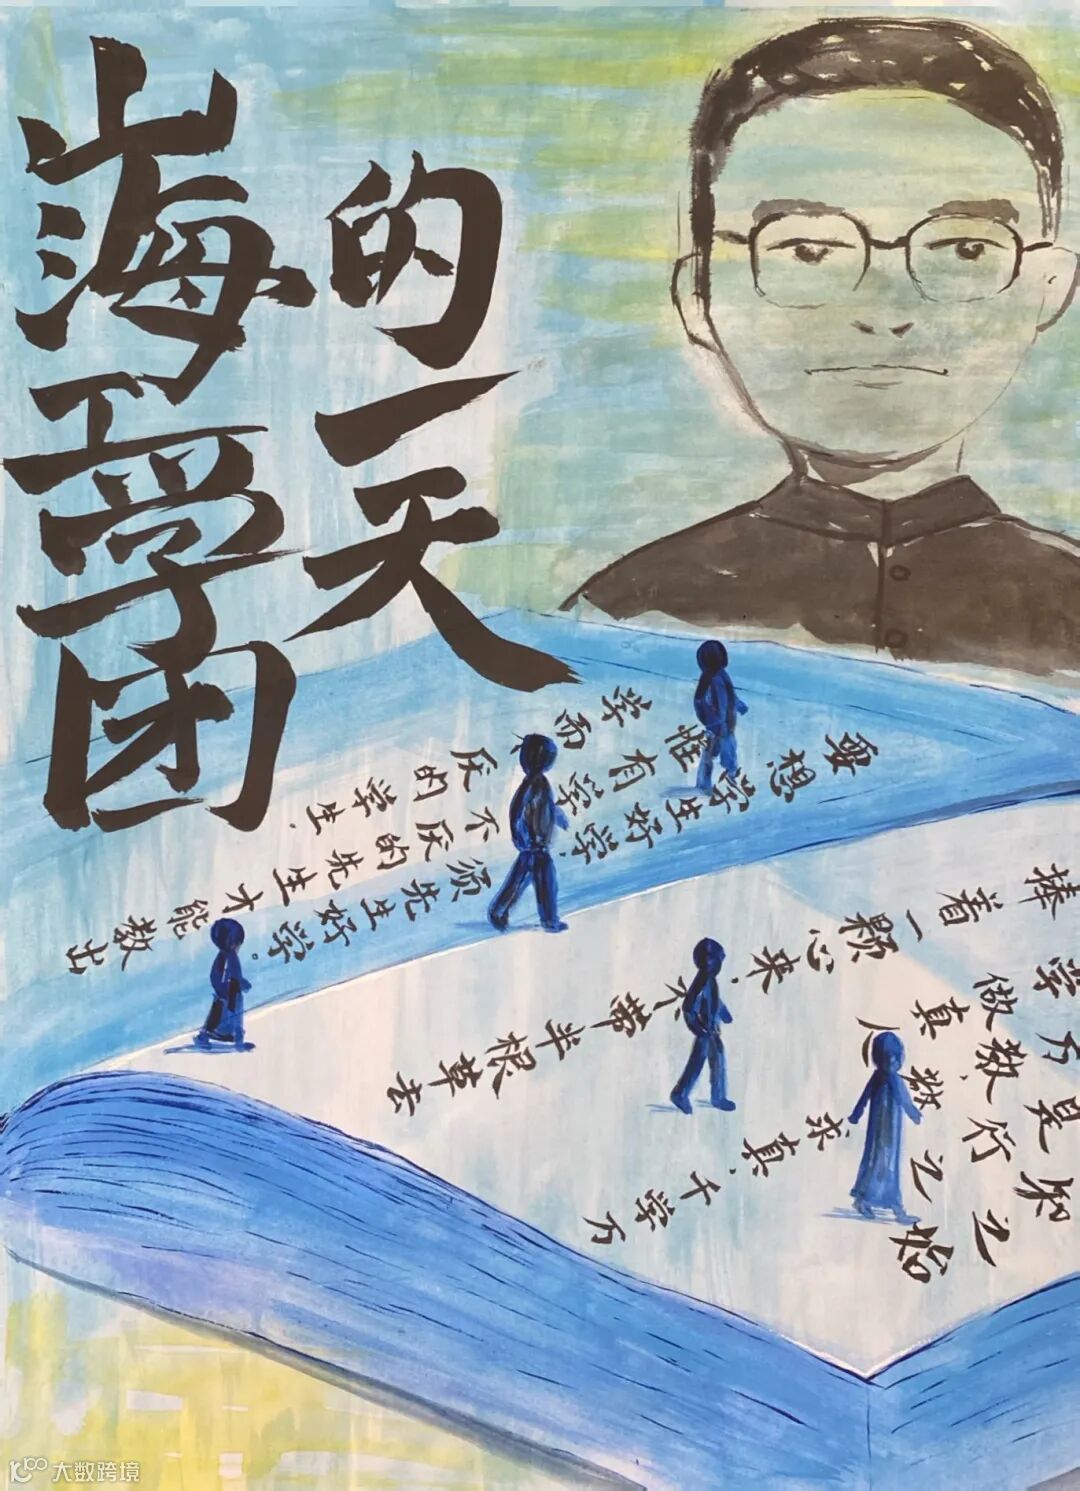 山海工学团
的一天
要想学生好学，须先生好学．
惟有学不厌的先生才能教出
学而厌的学生．
捧着一颗心来，不带半根草去
学做真人
万教，教求真．千学万
是行之
知之始
大数跨境